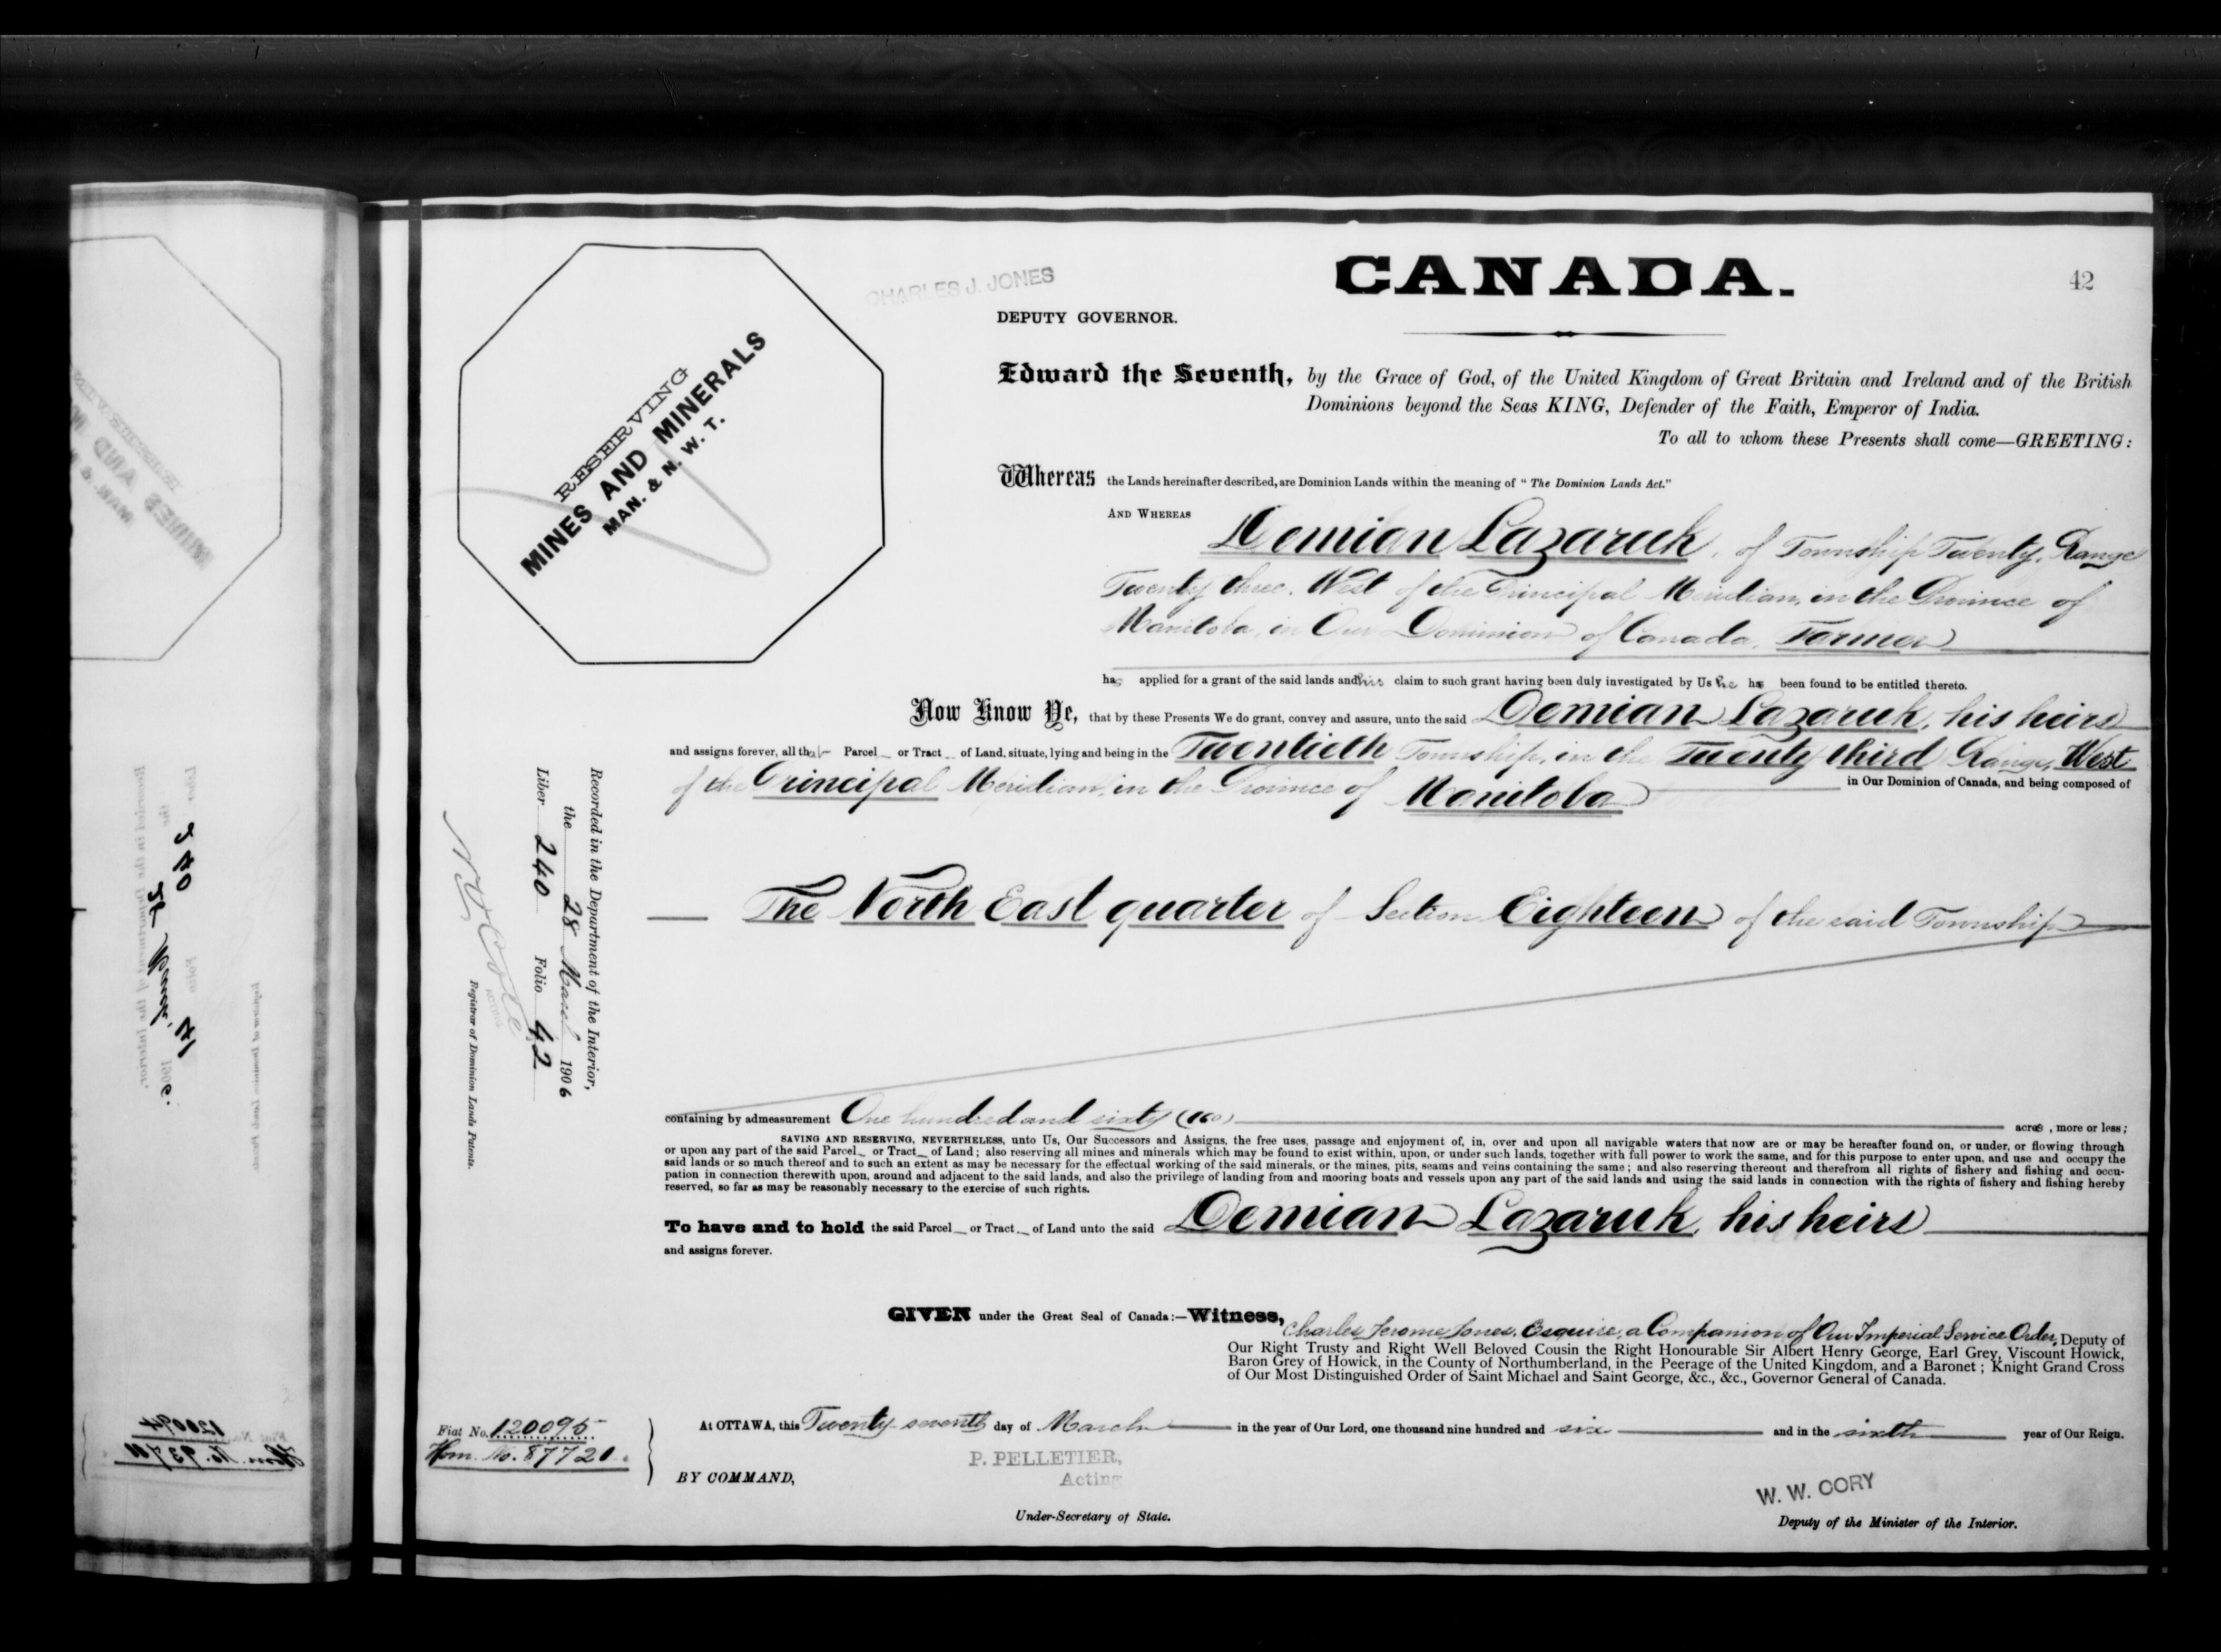 CANADA.
42
CHARLES J. JONES
DEPUTY GOVERNOR.
RESERVING
MINES AND MINERALS
MAN. & N. W. T.
Edward the Seventh, by the Grace of God, of the United Kingdom of Great Britain and Ireland and of the British
Dominions beyond the Seas KING, Defender of the Faith, Emperor of India.
To all to whom these Presents shall come—GREETING:
Whereas the Lands hereinafter described, are Dominion Lands within the meaning of "The Dominion Lands Act."
AND WHEREAS Demian Lazaruk, of Township Twenty, Range
Twenty three, West of the Principal Meridian, in the Province of
Manitoba, in Our Dominion of Canada, Farmer
has applied for a grant of the said lands and his claim to such grant having been duly investigated by Us he has been found to be entitled thereto.
Now Know Ye, that by these Presents We do grant, convey and assure, unto the said Demian Lazaruk, his heirs
and assigns forever, all that Parcel or Tract of Land, situate, lying and being in the Twentieth Township, in the Twenty third Range, West
of the Principal Meridian, in the Province of Manitoba in Our Dominion of Canada, and being composed of
The North East quarter of Section Eighteen of the said Township
containing by admeasurement One hundred and sixty (160) acres, more or less;
SAVING AND RESERVING, NEVERTHELESS, unto Us, Our Successors and Assigns, the free uses, passage and enjoyment of, in, over and upon all navigable waters that now are or may be hereafter found on, or under, or flowing through
or upon any part of the said Parcel or Tract of Land; also reserving all mines and minerals which may be found to exist within, upon, or under such lands, together with full power to work the same, and for this purpose to enter upon, and use and occupy the
said lands or so much thereof and to such an extent as may be necessary for the effectual working of the said minerals, or the mines, pits, seams and veins containing the same; and also reserving thereout and therefrom all rights of fishery and fishing and occu-
pation in connection therewith upon, around and adjacent to the said lands, and also the privilege of landing from and mooring boats and vessels upon any part of the said lands and using the said lands in connection with the rights of fishery and fishing hereby
reserved, so far as may be reasonably necessary to the exercise of such rights.
To have and to hold the said Parcel or Tract of Land unto the said Demian Lazaruk, his heirs
and assigns forever.
GIVEN under the Great Seal of Canada:—Witness, Charles Jerome Jones, Esquire, a Companion of Our Imperial Service Order, Deputy of
Our Right Trusty and Right Well Beloved Cousin the Right Honourable Sir Albert Henry George, Earl Grey, Viscount Howick,
Baron Grey of Howick, in the County of Northumberland, in the Peerage of the United Kingdom, and a Baronet; Knight Grand Cross
of Our Most Distinguished Order of Saint Michael and Saint George, &c., &c., Governor General of Canada.
At OTTAWA, this Twenty seventh day of March in the year of Our Lord, one thousand nine hundred and six and in the sixth year of Our Reign.
BY COMMAND,
P. PELLETIER,
Acting
Under-Secretary of State.
W. W. CORY
Deputy of the Minister of the Interior.
Fiat No. 120095
Hom. No. 87720
Recorded in the Department of the Interior,
the 28 March 1906
Liber 240 Folio 42
ACTING
Registrar of Dominion Lands Patents.